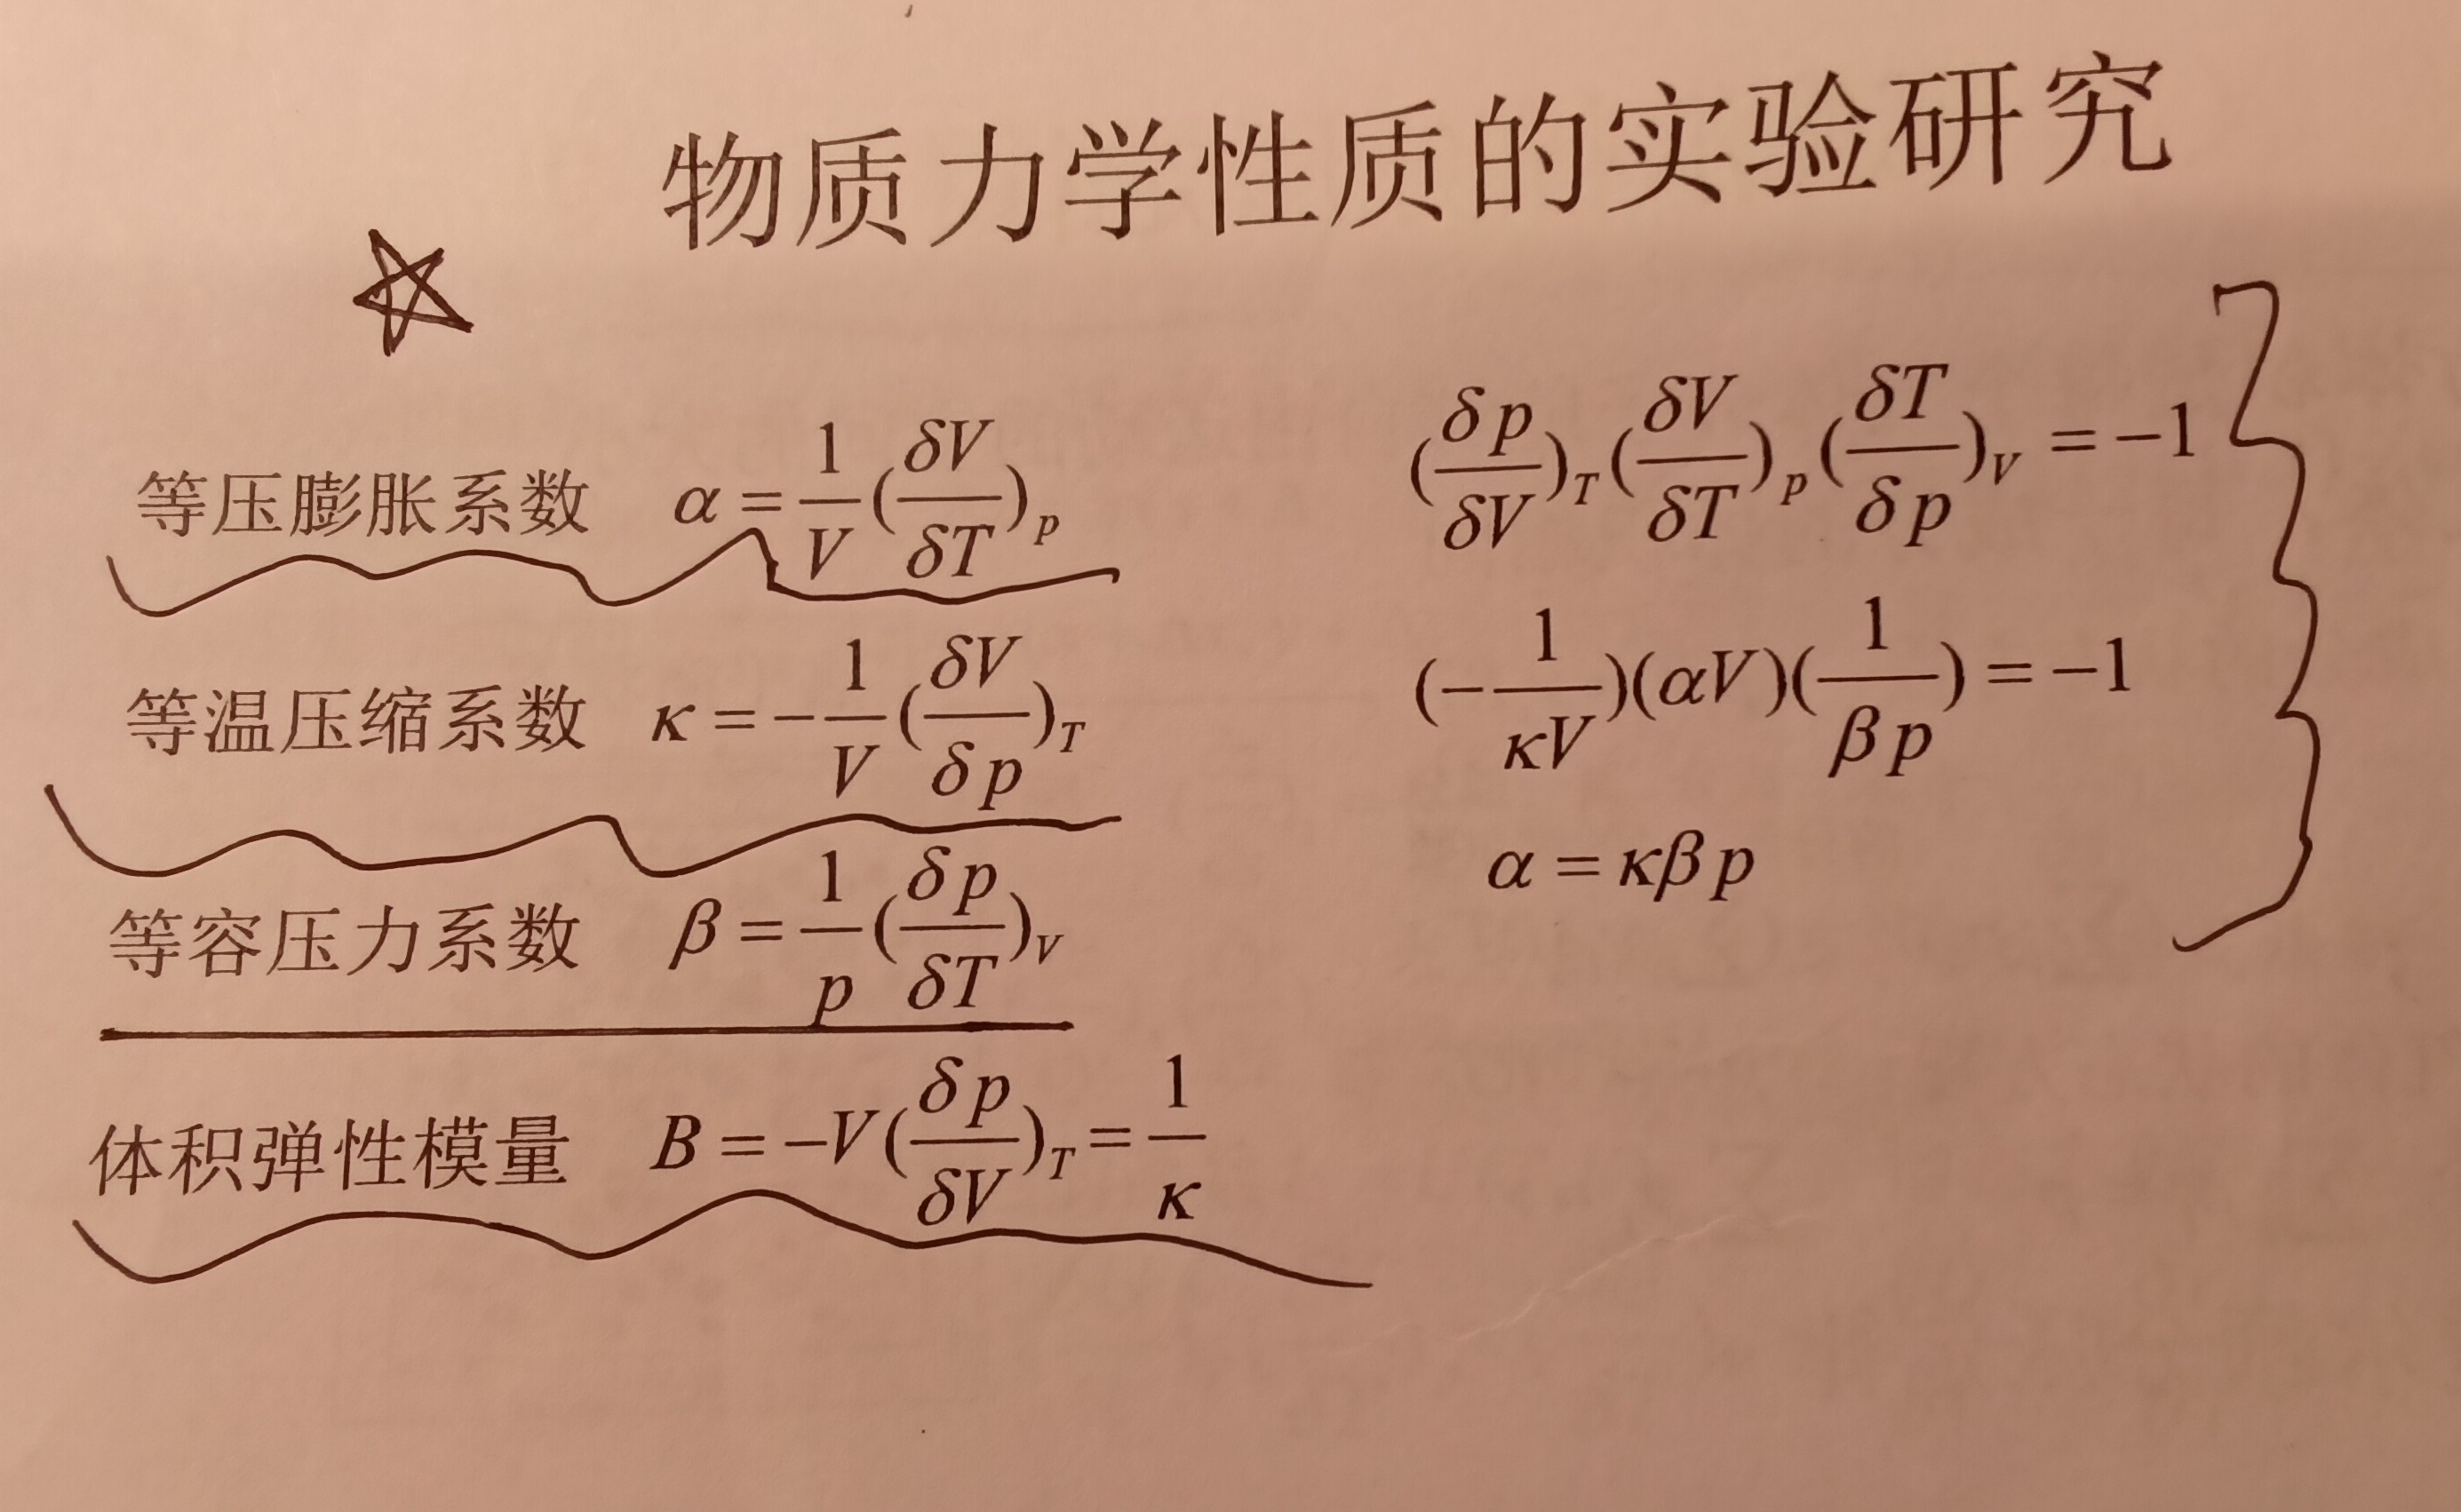 物质力学性质的实验研究
等压膨胀系数 α = 1/V (δV/δT)_p
等温压缩系数 κ = −1/V (δV/δp)_T
等容压力系数 β = 1/p (δp/δT)_V
体积弹性模量 B = −V(δp/δV)_T = 1/κ
(δp/δV)_T (δV/δT)_p (δT/δp)_V = −1
(−1/κV)(αV)(1/βp) = −1
α = κβp